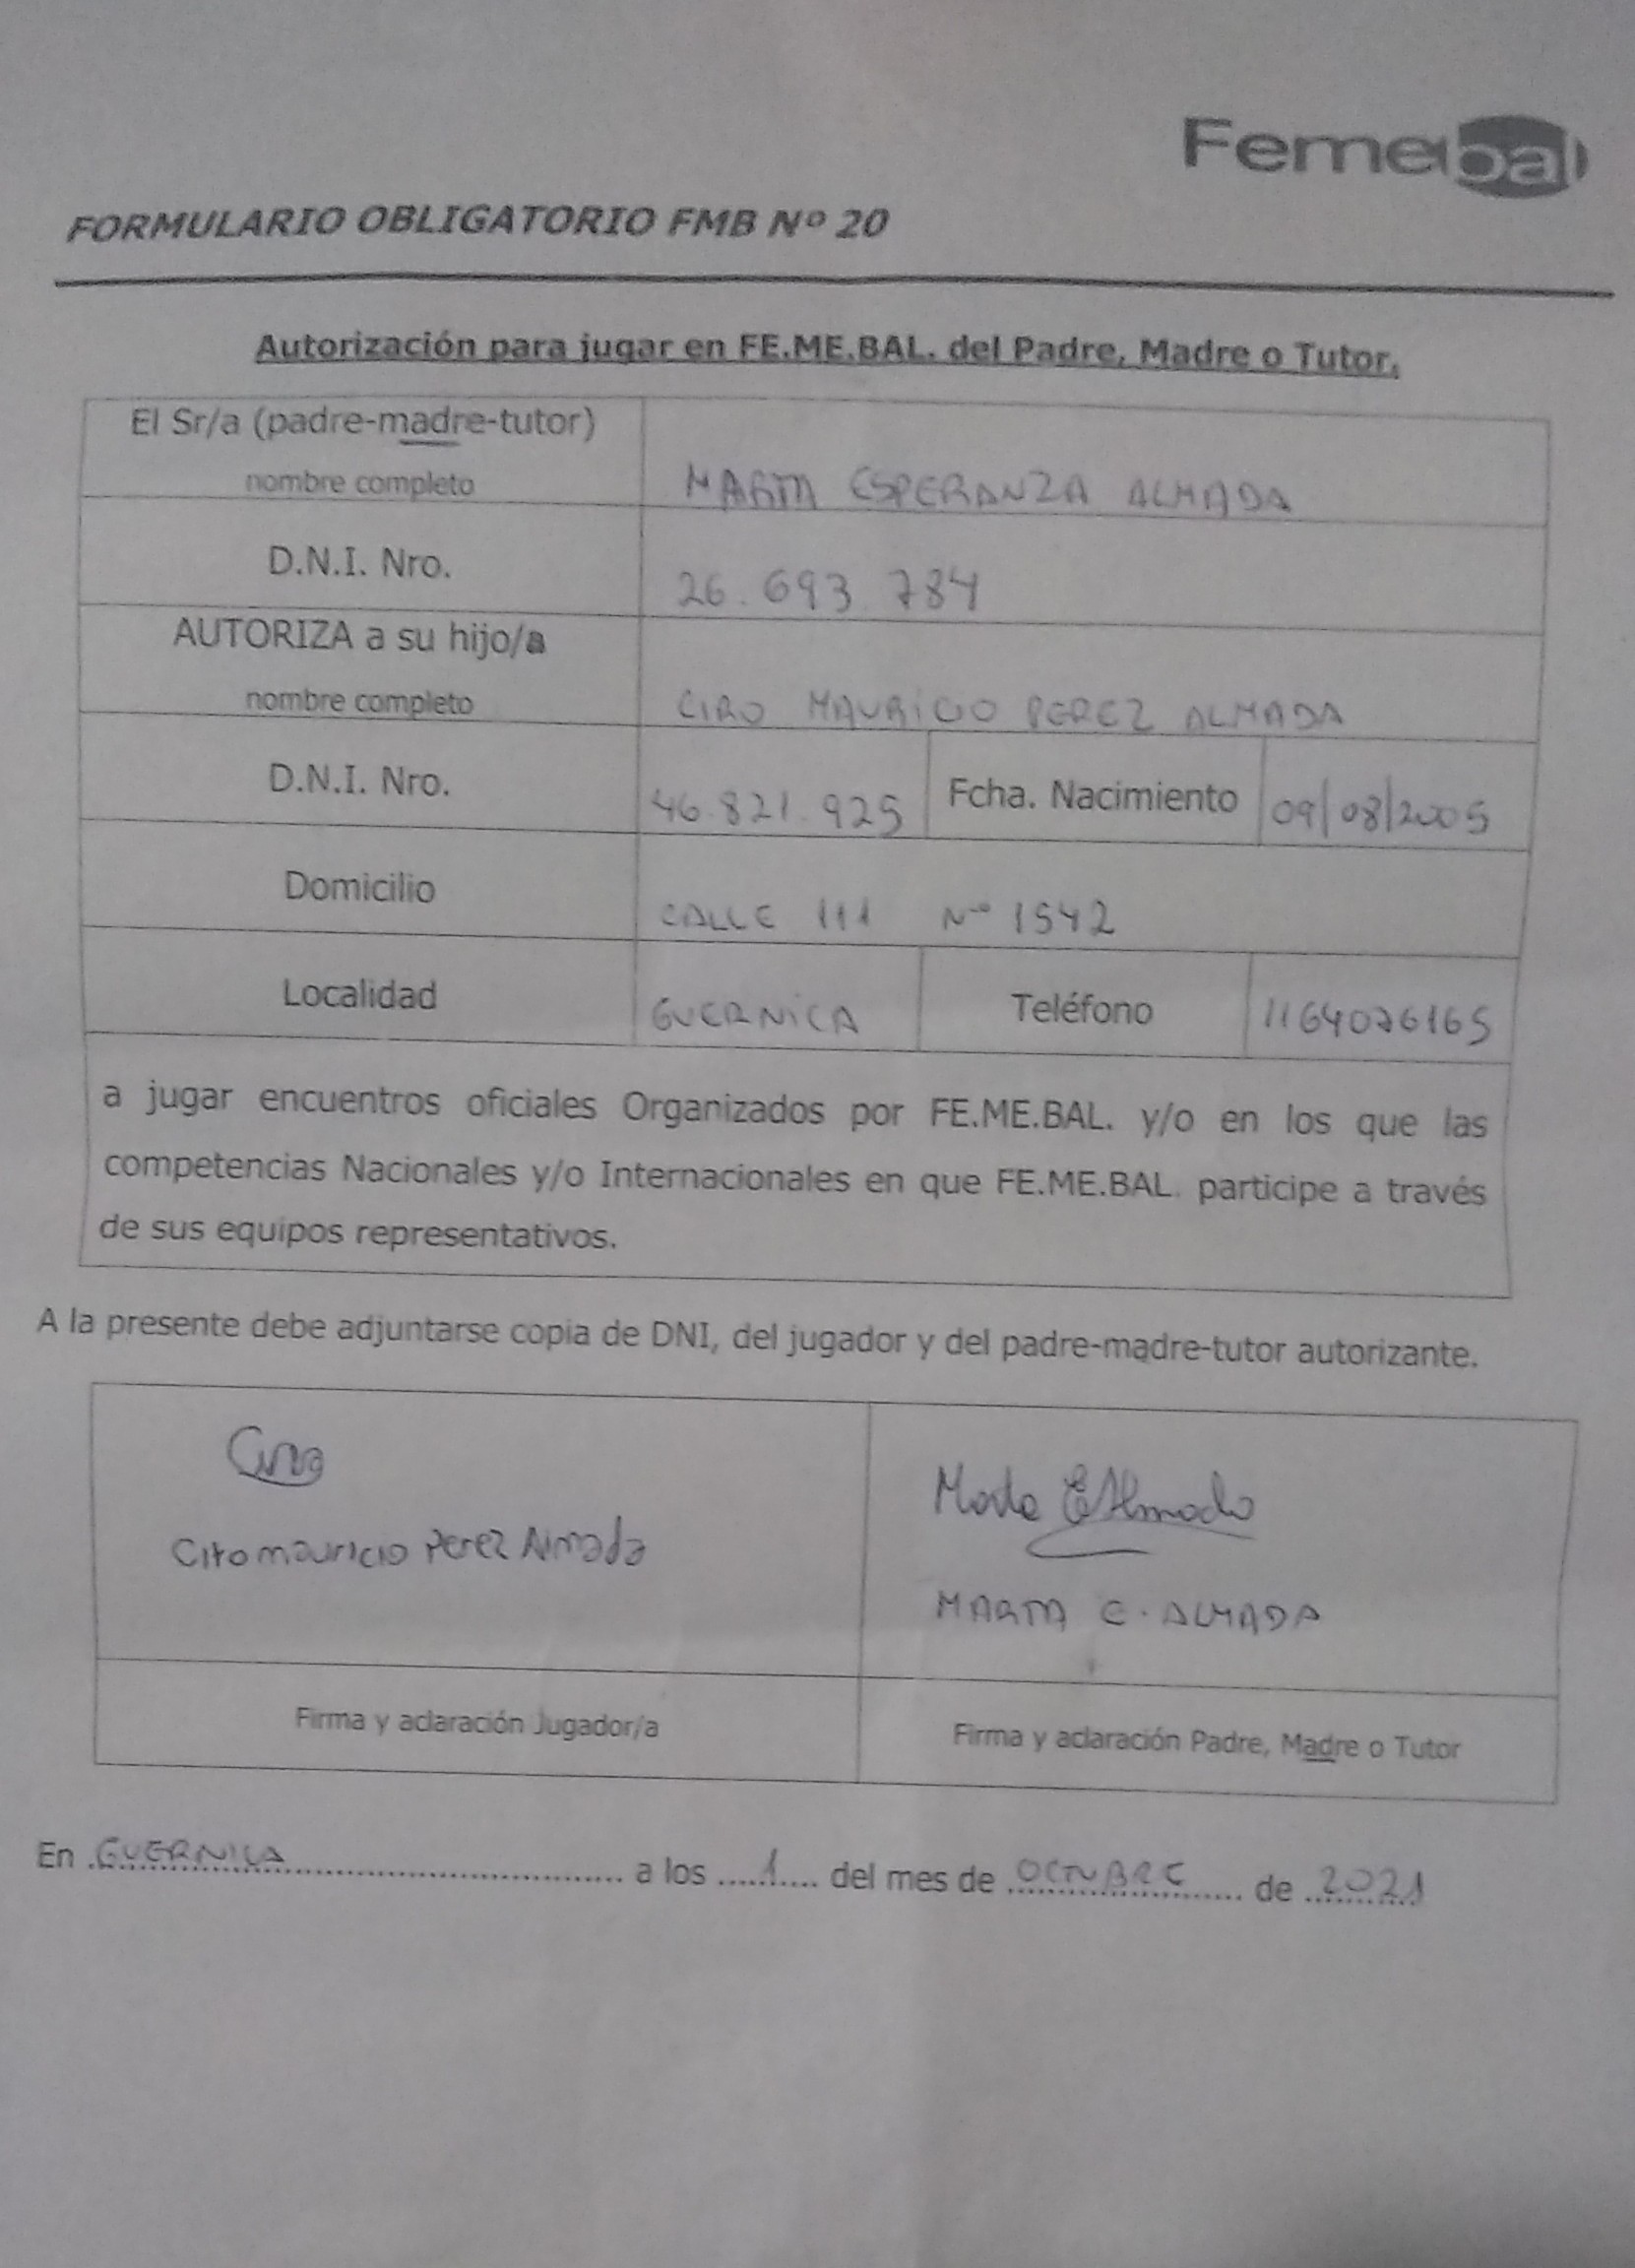 Femebal
FORMULARIO OBLIGATORIO FMB Nº 20
Autorización para jugar en FE.ME.BAL. del Padre, Madre o Tutor.
El Sr/a (padre-madre-tutor)
nombre completo MARTA ESPERANZA ALMADA
D.N.I. Nro. 26.693.784
AUTORIZA a su hijo/a
nombre completo CIRO MAURICIO PEREZ ALMADA
D.N.I. Nro. 46.821.925 Fcha. Nacimiento 09/08/2005
Domicilio CALLE 111 Nº 1542
Localidad GUERNICA Teléfono 1164076165
a jugar encuentros oficiales Organizados por FE.ME.BAL. y/o en los que las
competencias Nacionales y/o Internacionales en que FE.ME.BAL. participe a través
de sus equipos representativos.
A la presente debe adjuntarse copia de DNI, del jugador y del padre-madre-tutor autorizante.
Ciro
Ciro mauricio Perez Almada
Marta E Almada
MARTA E. ALMADA
Firma y aclaración Jugador/a
Firma y aclaración Padre, Madre o Tutor
En GUERNICA a los 1 del mes de OCTUBRE de 2021